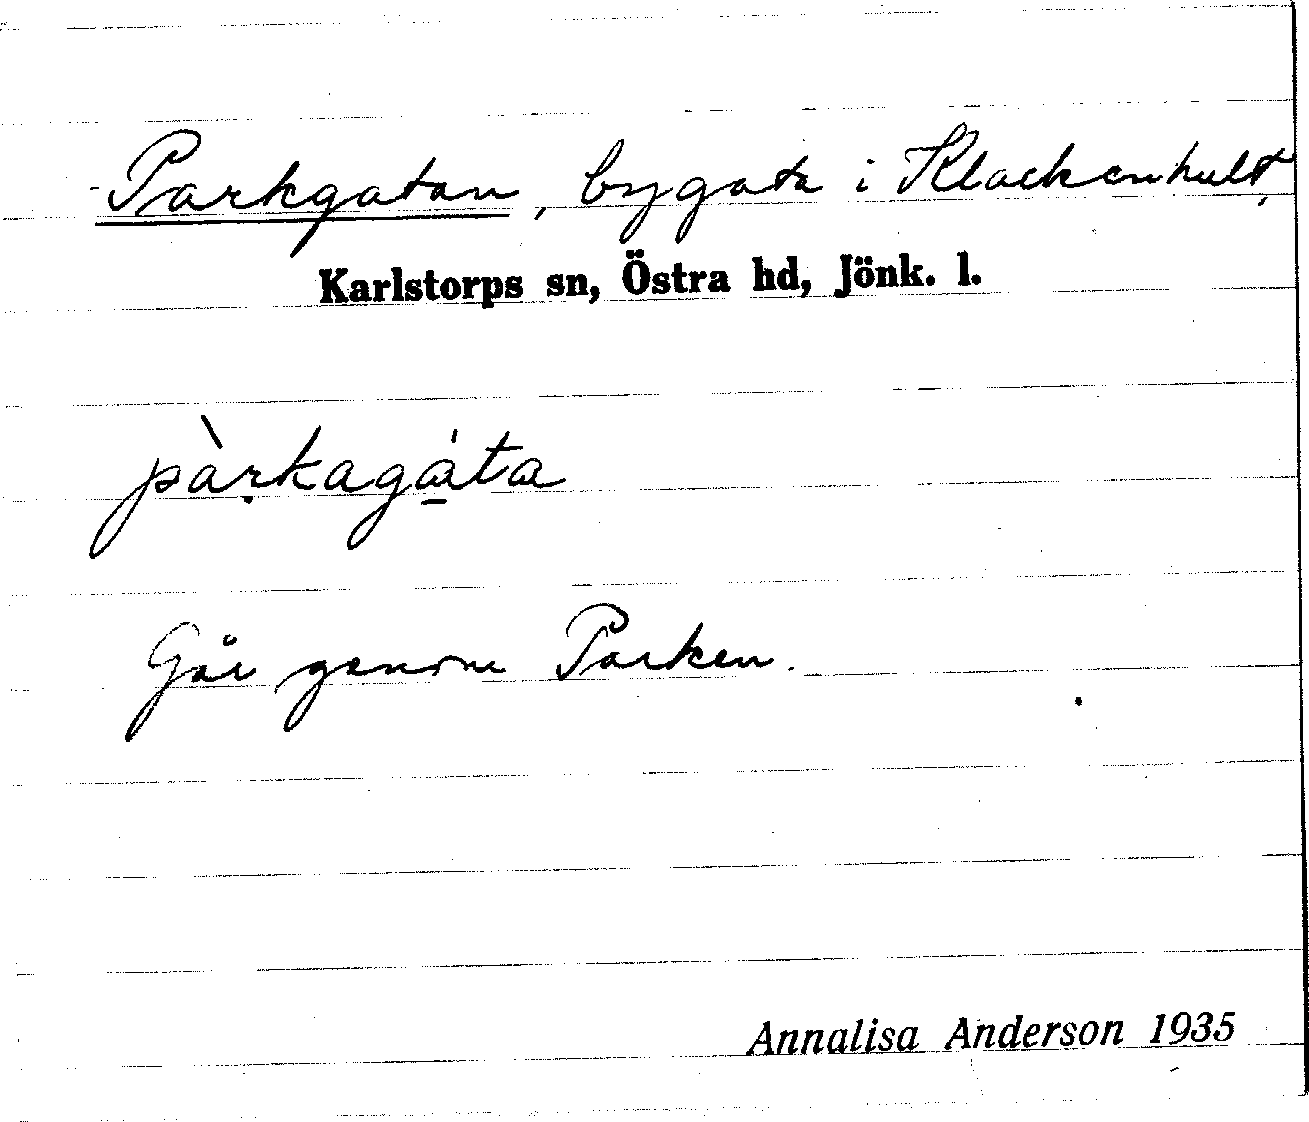 Parkgatan, bygata i Klackenhult,
Karlstorps sn, Östra hd, Jönk. l.
pàṛkagá̱ta
Går genom Parken.
Annalisa Anderson 1935